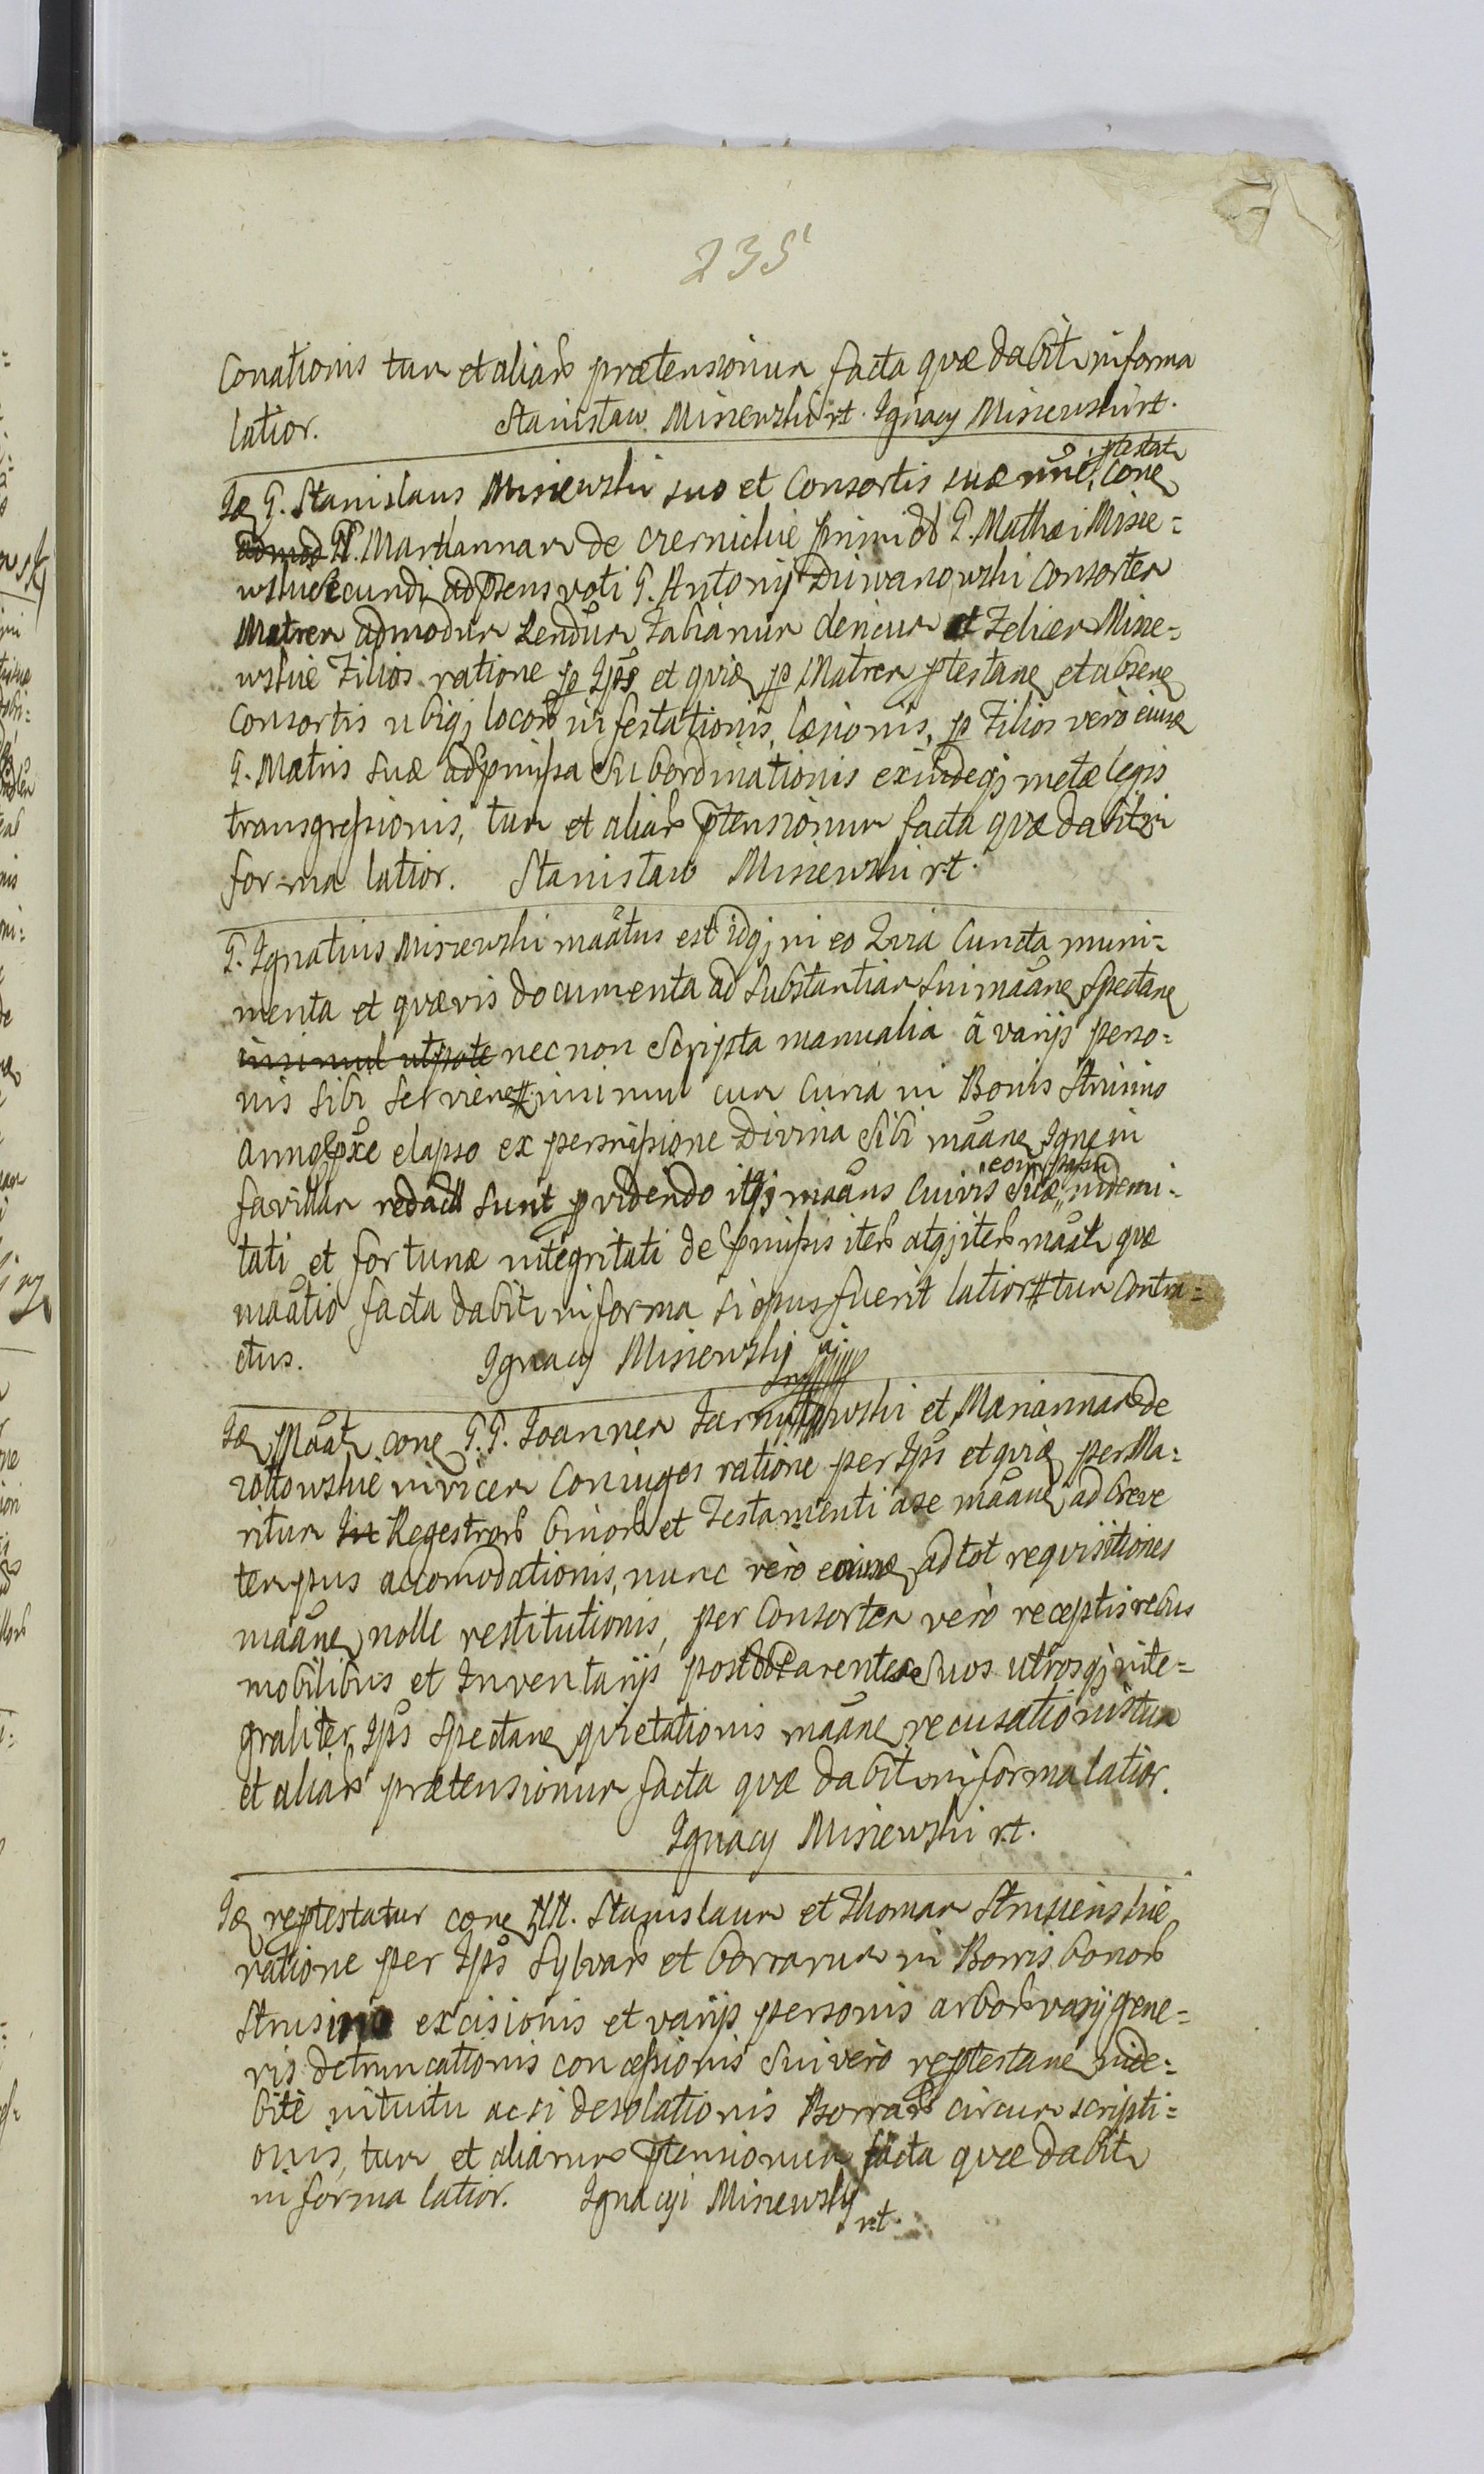 235
Conationis tum et aliar prætensionum facta quæ dabitr in forma
latior. Stanisław Misiewski rt. Ignacy Misiewski rt.
ptestatr
Id G. Stanislaus Misiewski suo et Consortis suæ nne, cone
G. Mariannam de czernickie primi G. Mathæi Misie=
wski secundi ad præns voti G. Antonij Duwanowski Consortem
Matrem admodum Rendum Fabianum clericum et Felicem Misie=
wskie Filios ratione p Ipsos et quid p Matrem ptestane et absene
Consortis ubiqj locor infestationis, læsionis, p Filios vero eiusd
G. Matris suæ ad pmissa Subordinationis exindeqj metæ legis
transgressionis, tum et aliar ptensionum facta quæ dabitr in
forma latior. Stanisław Misiewski rt.
G. Ignatius Misiewski maatus est idqj in eo Quia Cuncta muni=
menta et quævis documenta ad Substantiam Sui maane Spectane
insimul utpote nec non Scripta manualia à varijs perso=
nis Sibi Serviene # insimul cum Curia in Bonis Strusino
Anno pxe elapso ex permissione Divina Sibi maane Igne in
favillam redacta sunt pvidendo itqj maans Cuivis Suæ indemni=
tati et fortunæ integritati de pmissis iter atqj iter maatr quæ
maatio facta dabitr in forma si opus fuerit latior # tum Contra=
ctus. Ignacy Misiewski
Id Maatr cone G. G. Joannem et Mariannam de
zottowskie invicem Coniuges ratione per Ipsos et quid per Ma=
ritum Regestror binor et Testamenti a se maane ad breve
tempus accomodationis, nunc vero eorumd ad tot requisitiones
maane nolle restitutionis, per Consortem verò receptis rebus
mobilibus et Inventarijs post Parentes Suos utrosqj inte=
graliter Ips Spectane quietationis maane recusationis tum
et aliar prætensionum facta quæ dabitr in forma latior.
Ignacy Misiewski rt.
Id reptestatur cone Stanislaum et Thomam Strusienskie
ratione per Ips Sylvar et borrarum in Borris bonor
Strusino excisionis et varijs personis arbor varij gene=
ris detruncationis concessionis Sui vero reptestane inde=
bitè intuitu ac si desolationis Borrar circumscripti=
onis, tum et aliarum ptensionum facta quæ dabitr
in forma latior. Ignacyi Misiewsky rt.